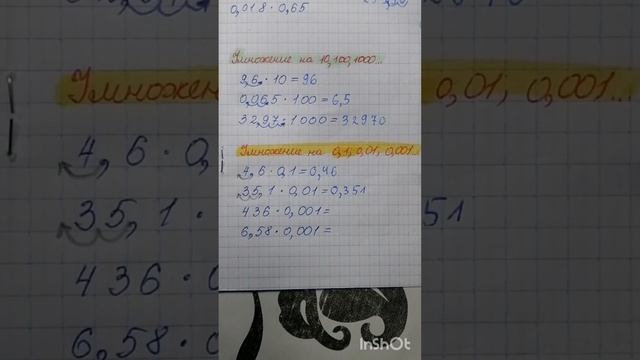 0,018 · 0,65
Умножение на 10,100,1000...
9,6 · 10 = 96
0,065 · 100 = 6,5
32,97 · 1000 = 32970
Умножение на 0,1; 0,01; 0,001...
4,6 · 0,1 = 0,46
35,1 · 0,01 = 0,351
436 · 0,001 =
6,58 · 0,001 =
Умножение
0,01; 0,001...
4,6 · 0,
35,1 ·
51
436 · 0
6,58 · 0
InShOt